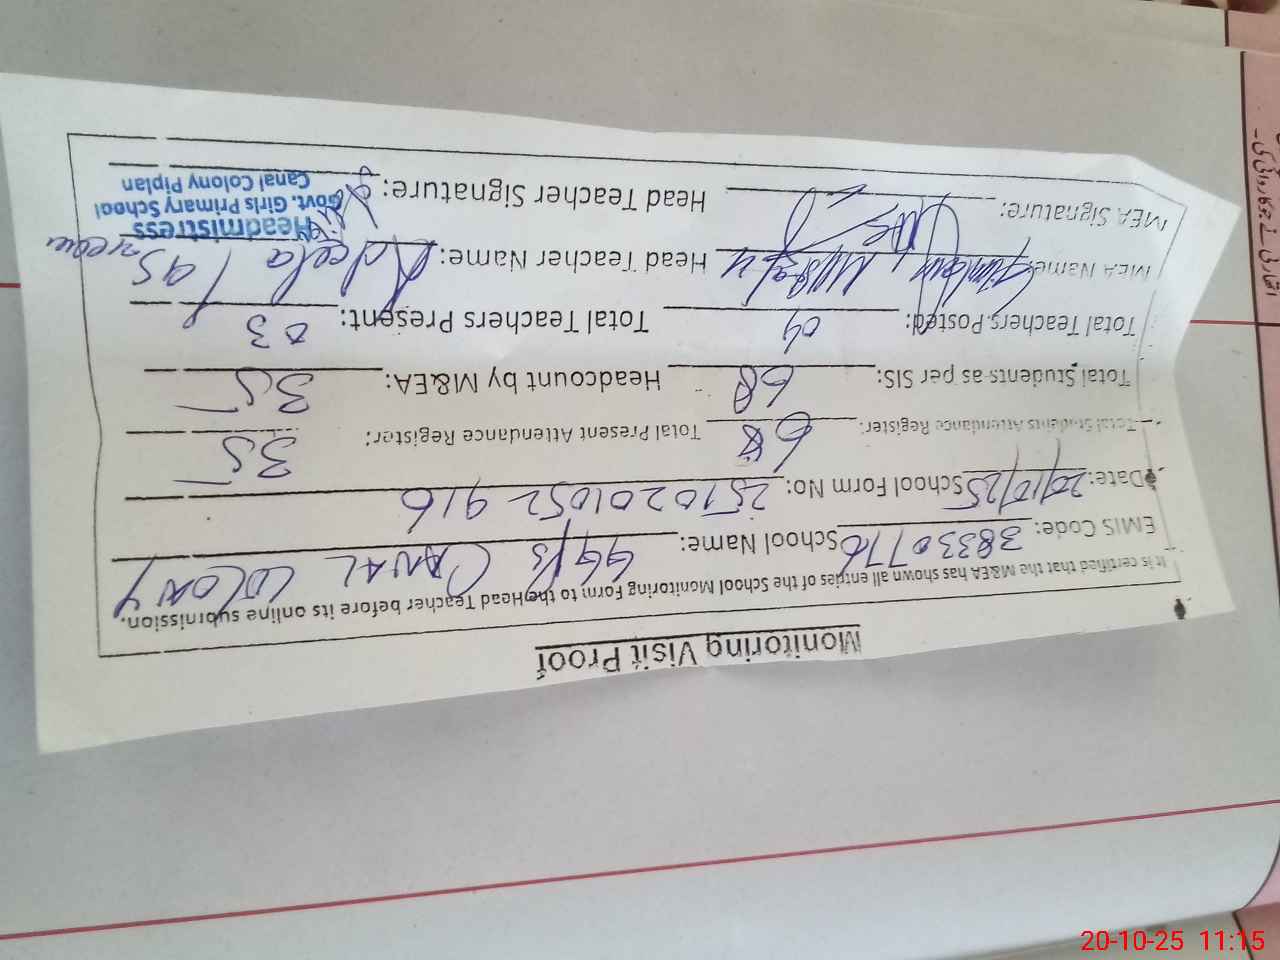 Monitoring Visit Proof
It is certified that the M&EA has shown all entries of the School Monitoring Form to the Head Teacher before its online submission.
EMIS Code: 38330776 School Name: GGPS CANAL COLONY
Date: 20/10/25 School Form No: 2510201052916
Total Students Attendance Register: 68 Total Present Attendance Register: 35
Total Students as per SIS: 68 Headcount by M&EA: 35
Total Teachers Posted: 04 Total Teachers Present: 03
MEA Name: Head Teacher Name: Adeela
MEA Signature: Head Teacher Signature:
Headmistress
Govt. Girls Primary School
Canal Colony Piplan
20-10-25 11:15